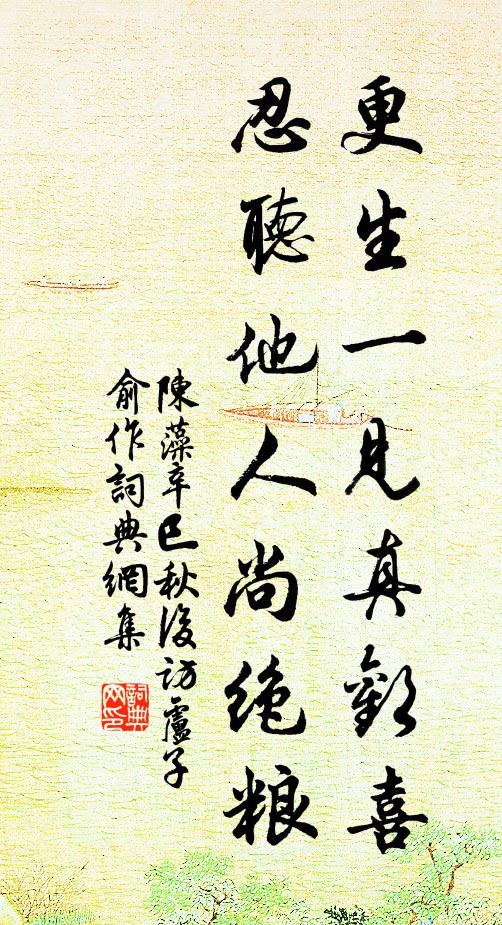 更生一見真歡喜
忍聽他人尚絶粮
陳藻辛巳秋後訪盧子
俞作詞典網集
詞典
网印